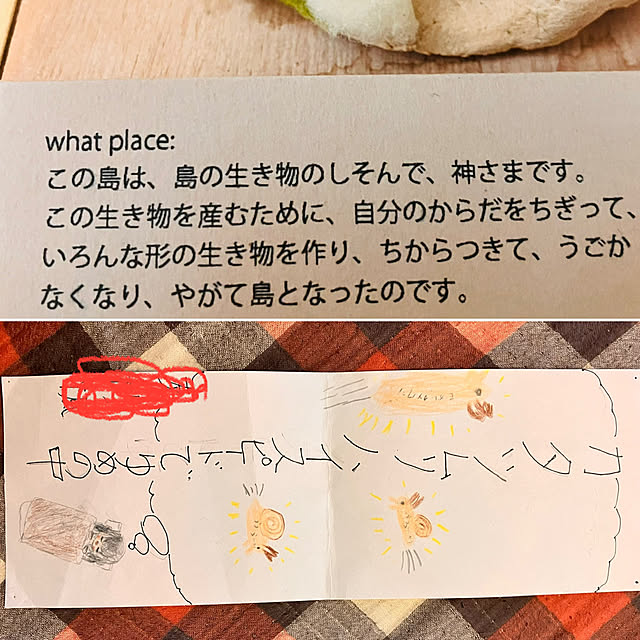 what place:
この島は、島の生き物のしそんで、神さまです。
この生き物を産むために、自分のからだをちぎって、
いろんな形の生き物を作り、ちからつきて、うごか
なくなり、やがて島となったのです。
カタツムリハイスピードでゆめの中